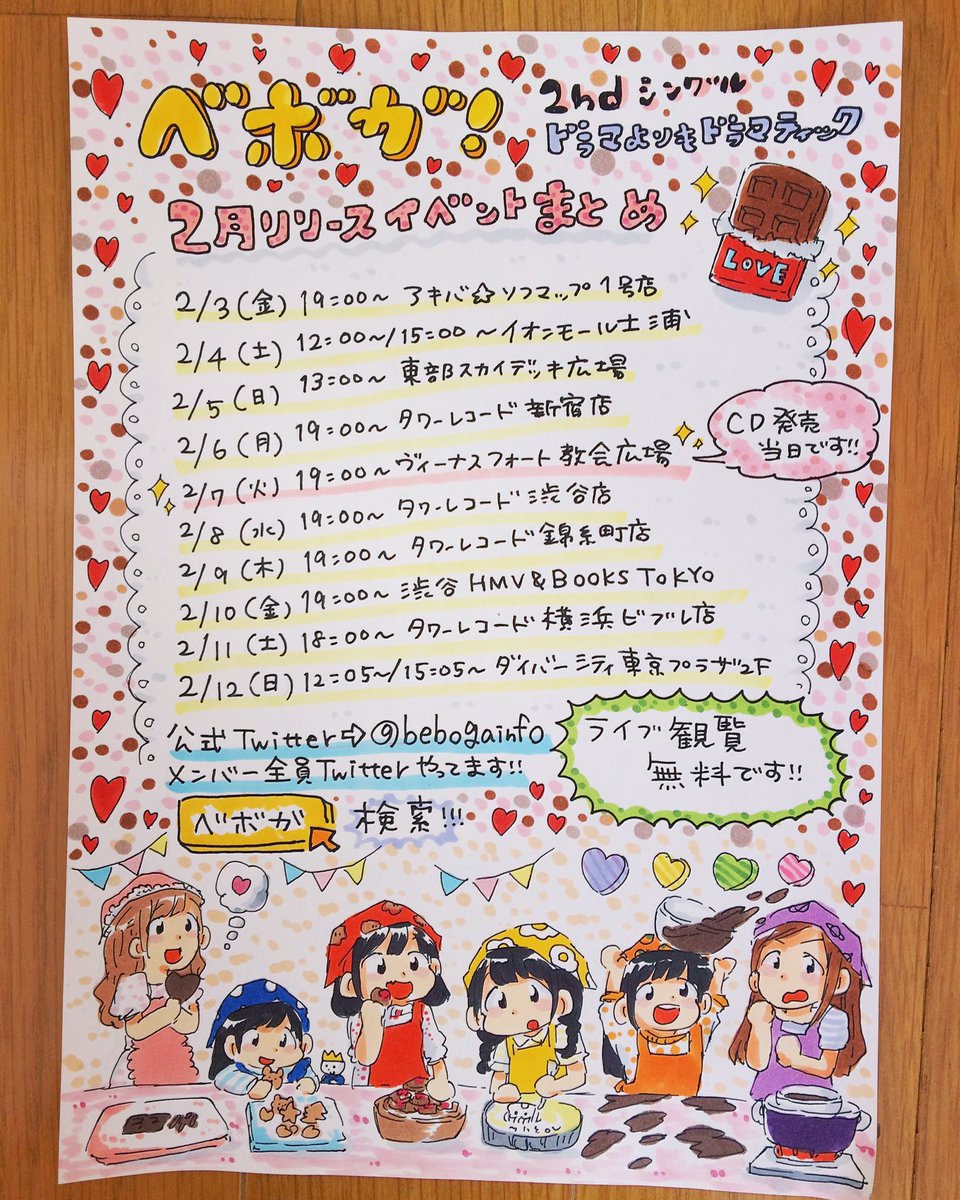 ベボガ!
2nd シングル
ドラマよりもドラマティック
2月リリースイベントまとめ
LOVE
2/3(金) 19:00~ アキバ☆ソフマップ1号店
2/4(土) 12:00~/15:00~イオンモール土浦
2/5(日) 13:00~ 東部スカイデッキ広場
2/6(月) 19:00~ タワーレコード新宿店
2/7(火) 19:00~ヴィーナスフォート教会広場
CD発売
当日です!!
2/8(水) 19:00~ タワーレコード渋谷店
2/9(木) 19:00~ タワーレコード錦糸町店
2/10(金) 19:00~ 渋谷 HMV&BOOKS TOKYO
2/11(土) 18:00~ タワーレコード横浜ビブレ店
2/12(日) 12:05~/15:05~ ダイバーシティ東京プラザ2F
公式 Twitter⇨@bebogainfo
メンバー全員Twitterやってます!!
ライブ観覧
無料です!!
ベボガ 検索!!!